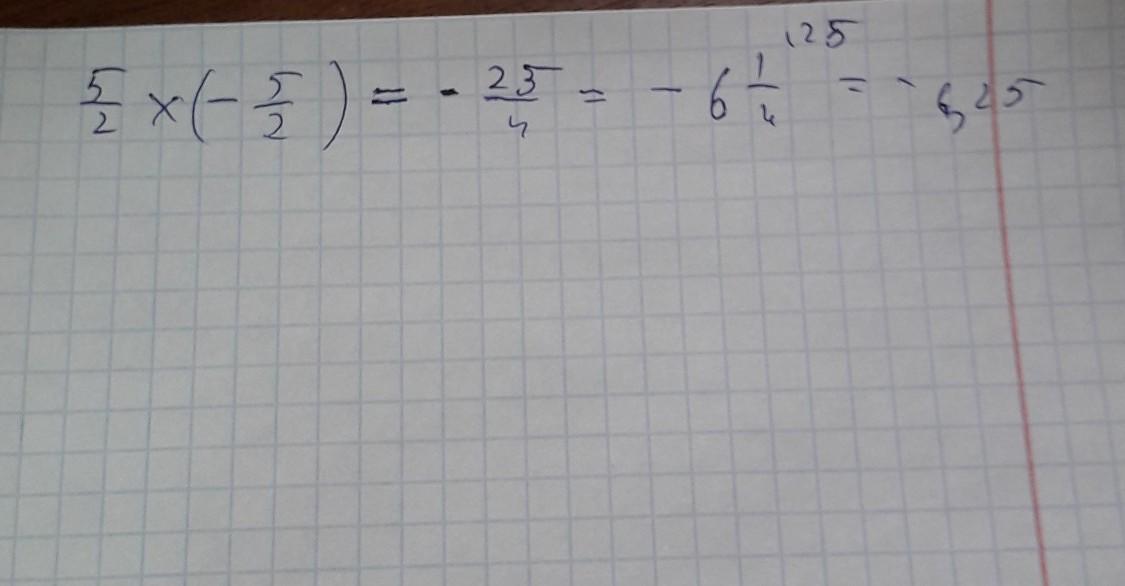 5/2 × (- 5/2) = - 25/4 = - 6 1/4 ^(\25) = - 6,25